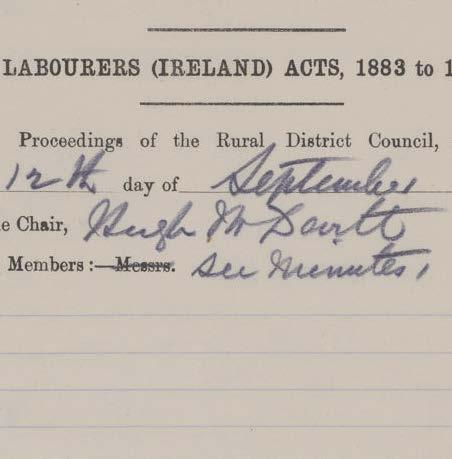 LABOURERS (IRELAND) ACTS, 1883 to 1
Proceedings of the Rural District Council,
12th day of September
e Chair, Hugh McDevitt
Members:—Messrs. See Minutes,